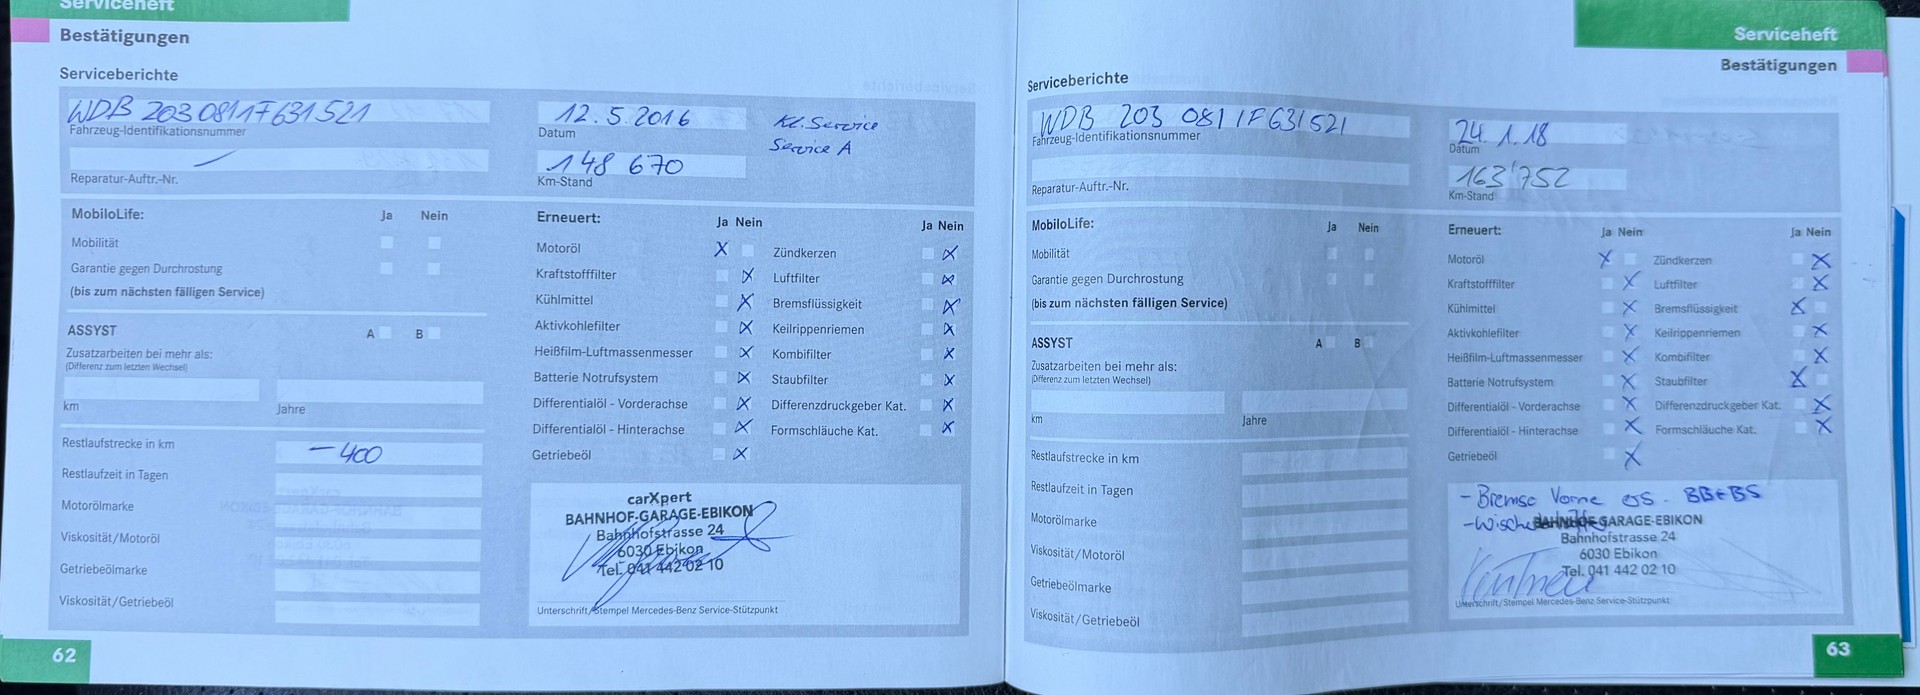 Serviceheft
Bestätigungen
Serviceberichte
WDB 2030811F631521
Fahrzeug-Identifikationsnummer
Reparatur-Auftr.-Nr.
12.5.2016
Datum
148 670
Km-Stand
Kl. Service
Service A
MobiloLife: Ja Nein
Mobilität
Garantie gegen Durchrostung
(bis zum nächsten fälligen Service)
ASSYST A B
Zusatzarbeiten bei mehr als:
(Differenz zum letzten Wechsel)
km Jahre
Restlaufstrecke in km -400
Restlaufzeit in Tagen
Motorölmarke
Viskosität/Motoröl
Getriebeölmarke
Viskosität/Getriebeöl
Erneuert: Ja Nein Ja Nein
Motoröl X Zündkerzen X
Kraftstofffilter X Luftfilter X
Kühlmittel X Bremsflüssigkeit X
Aktivkohlefilter X Keilrippenriemen X
Heißfilm-Luftmassenmesser X Kombifilter X
Batterie Notrufsystem X Staubfilter X
Differentialöl - Vorderachse X Differenzdruckgeber Kat. X
Differentialöl - Hinterachse X Formschläuche Kat. X
Getriebeöl X
carXpert
BAHNHOF-GARAGE-EBIKON
Bahnhofstrasse 24
6030 Ebikon
Tel. 041 442 02 10
Unterschrift/Stempel Mercedes-Benz Service-Stützpunkt
62
Serviceheft
Bestätigungen
Serviceberichte
WDB 203 081 1F631521
Fahrzeug-Identifikationsnummer
Reparatur-Auftr.-Nr.
24.1.18
Datum
163'752
Km-Stand
MobiloLife: Ja Nein
Mobilität
Garantie gegen Durchrostung
(bis zum nächsten fälligen Service)
ASSYST A B
Zusatzarbeiten bei mehr als:
(Differenz zum letzten Wechsel)
km Jahre
Restlaufstrecke in km
Restlaufzeit in Tagen
Motorölmarke
Viskosität/Motoröl
Getriebeölmarke
Viskosität/Getriebeöl
Erneuert: Ja Nein Ja Nein
Motoröl X Zündkerzen X
Kraftstofffilter X Luftfilter X
Kühlmittel X Bremsflüssigkeit X
Aktivkohlefilter X Keilrippenriemen X
Heißfilm-Luftmassenmesser X Kombifilter X
Batterie Notrufsystem X Staubfilter X
Differentialöl - Vorderachse X Differenzdruckgeber Kat. X
Differentialöl - Hinterachse X Formschläuche Kat. X
Getriebeöl X
- Bremse Vorne ers. BB+BS
BAHNHOF-GARAGE-EBIKON
Bahnhofstrasse 24
6030 Ebikon
Tel. 041 442 02 10
Unterschrift/Stempel Mercedes-Benz Service-Stützpunkt
63